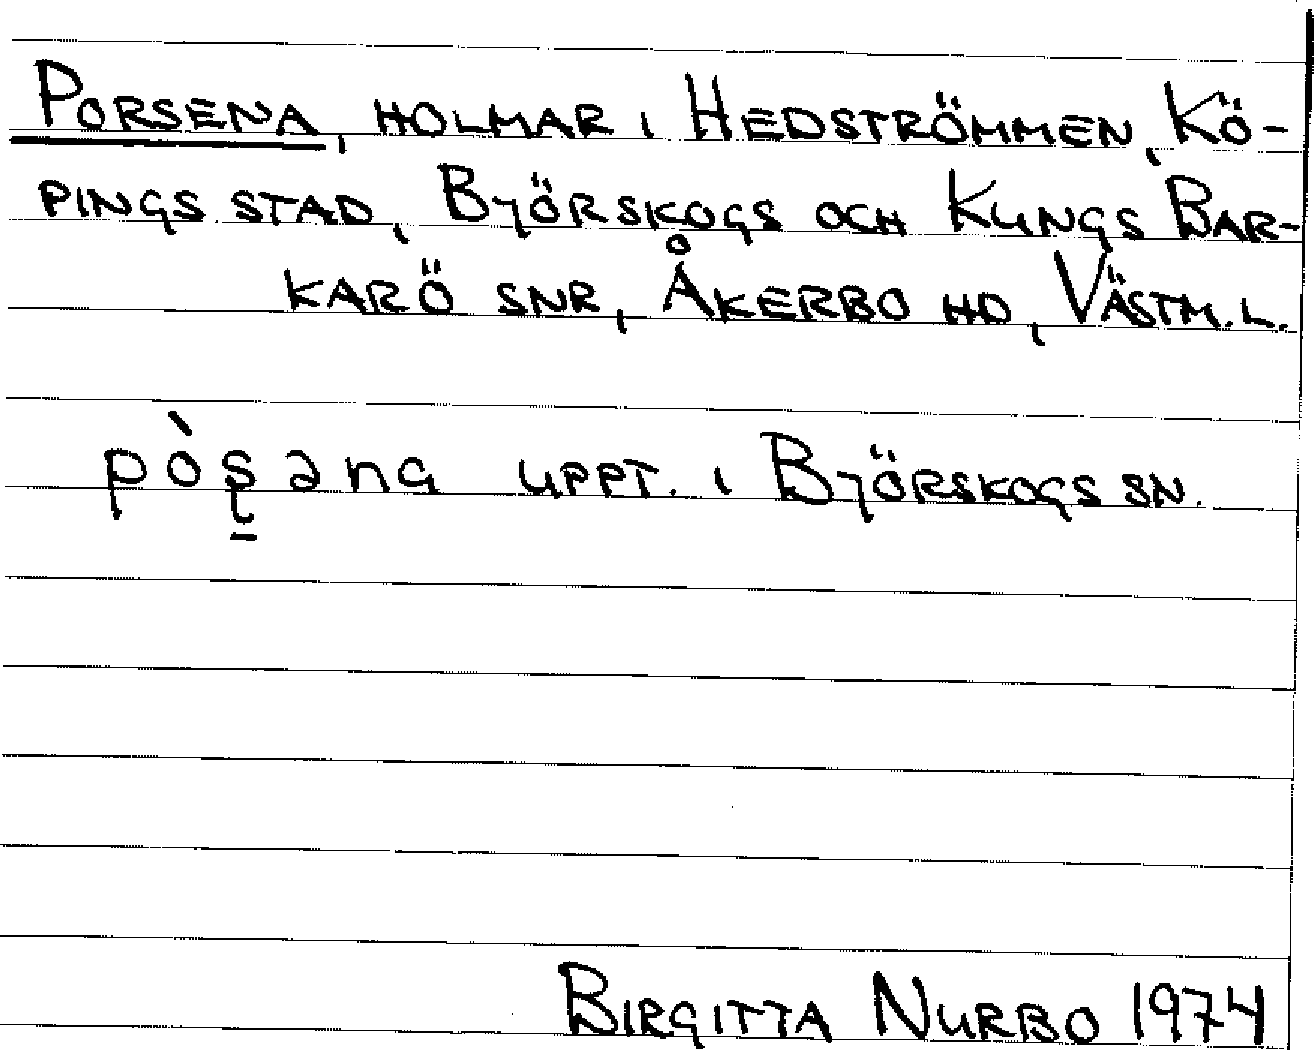 PORSENA, HOLMAR I HEDSTRÖMMEN, KÖ-
PINGS STAD, BJÖRSKOGS OCH KUNGS BAR-
KARÖ SNR, ÅKERBO HD, VÄSTM.L.
pò̀ʂ̱əna UPPT. I BJÖRSKOGS SN.
BIRGITTA NURBO 1974